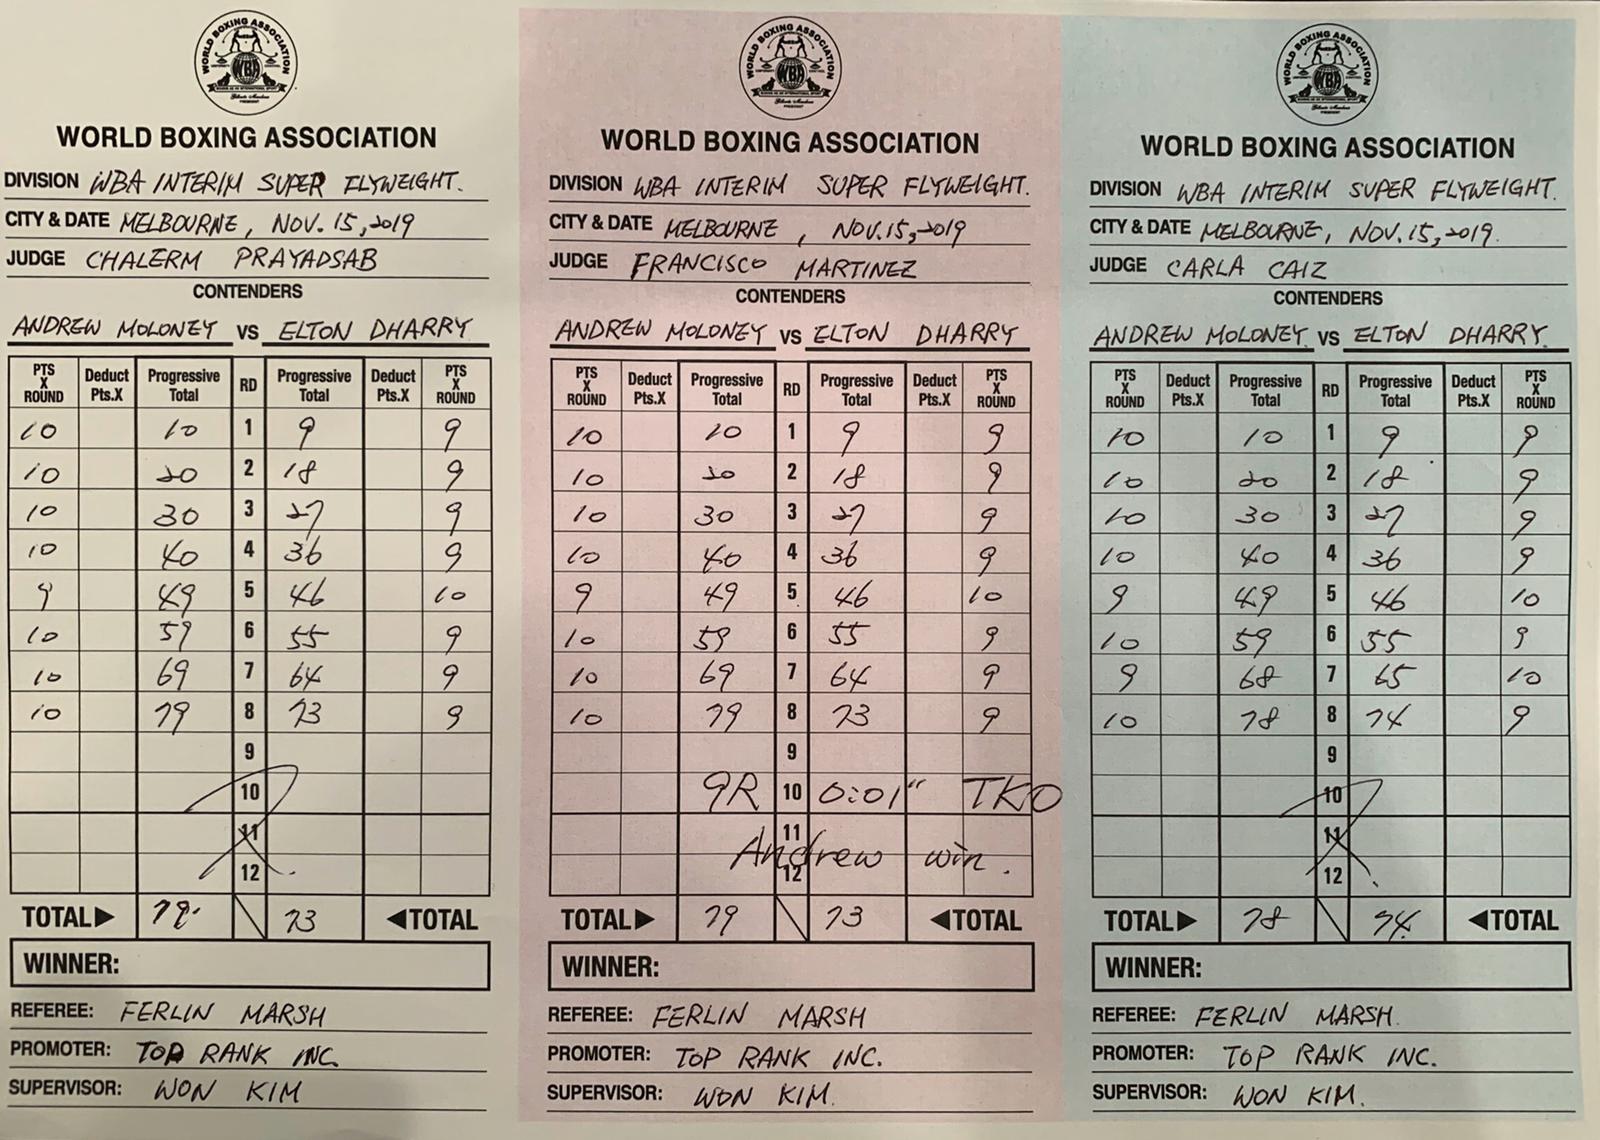 WORLD BOXING ASSOCIATION
WBA
WORLD BOXING ASSOCIATION
DIVISION WBA INTERIM SUPER FLYWEIGHT.
CITY & DATE MELBOURNE, NOV. 15, 2019
JUDGE CHALERM PRAYADSAB
CONTENDERS
ANDREW MOLONEY VS ELTON DHARRY
PTS X ROUND Deduct Pts.X Progressive Total RD Progressive Total Deduct Pts.X PTS X ROUND
10 10 1 9 9
10 20 2 18 9
10 30 3 27 9
10 40 4 36 9
9 49 5 46 10
10 59 6 55 9
10 69 7 64 9
10 79 8 73 9
9
10
11
12
TOTAL▶ 79 73 ◀TOTAL
WINNER:
REFEREE: FERLIN MARSH
PROMOTER: TOP RANK INC.
SUPERVISOR: WON KIM
WORLD BOXING ASSOCIATION
WBA
WORLD BOXING ASSOCIATION
DIVISION WBA INTERIM SUPER FLYWEIGHT.
CITY & DATE MELBOURNE, NOV. 15, 2019
JUDGE FRANCISCO MARTINEZ
CONTENDERS
ANDREW MOLONEY VS ELTON DHARRY
PTS X ROUND Deduct Pts.X Progressive Total RD Progressive Total Deduct Pts.X PTS X ROUND
10 10 1 9 9
10 20 2 18 9
10 30 3 27 9
10 40 4 36 9
9 49 5 46 10
10 59 6 55 9
10 69 7 64 9
10 79 8 73 9
9
9R 10 0:01" TKO
11
Andrew win.
12
TOTAL▶ 79 73 ◀TOTAL
WINNER:
REFEREE: FERLIN MARSH
PROMOTER: TOP RANK INC.
SUPERVISOR: WON KIM.
WORLD BOXING ASSOCIATION
WBA
WORLD BOXING ASSOCIATION
DIVISION WBA INTERIM SUPER FLYWEIGHT.
CITY & DATE MELBOURNE, NOV. 15, 2019.
JUDGE CARLA CAIZ
CONTENDERS
ANDREW MOLONEY VS ELTON DHARRY.
PTS X ROUND Deduct Pts.X Progressive Total RD Progressive Total Deduct Pts.X PTS X ROUND
10 10 1 9 9
10 20 2 18 9
10 30 3 27 9
10 40 4 36 9
9 49 5 46 10
10 59 6 55 9
9 68 7 65 10
10 78 8 74 9
9
10
11
12
TOTAL▶ 78 74 ◀TOTAL
WINNER:
REFEREE: FERLIN MARSH.
PROMOTER: TOP RANK INC.
SUPERVISOR: WON KIM.